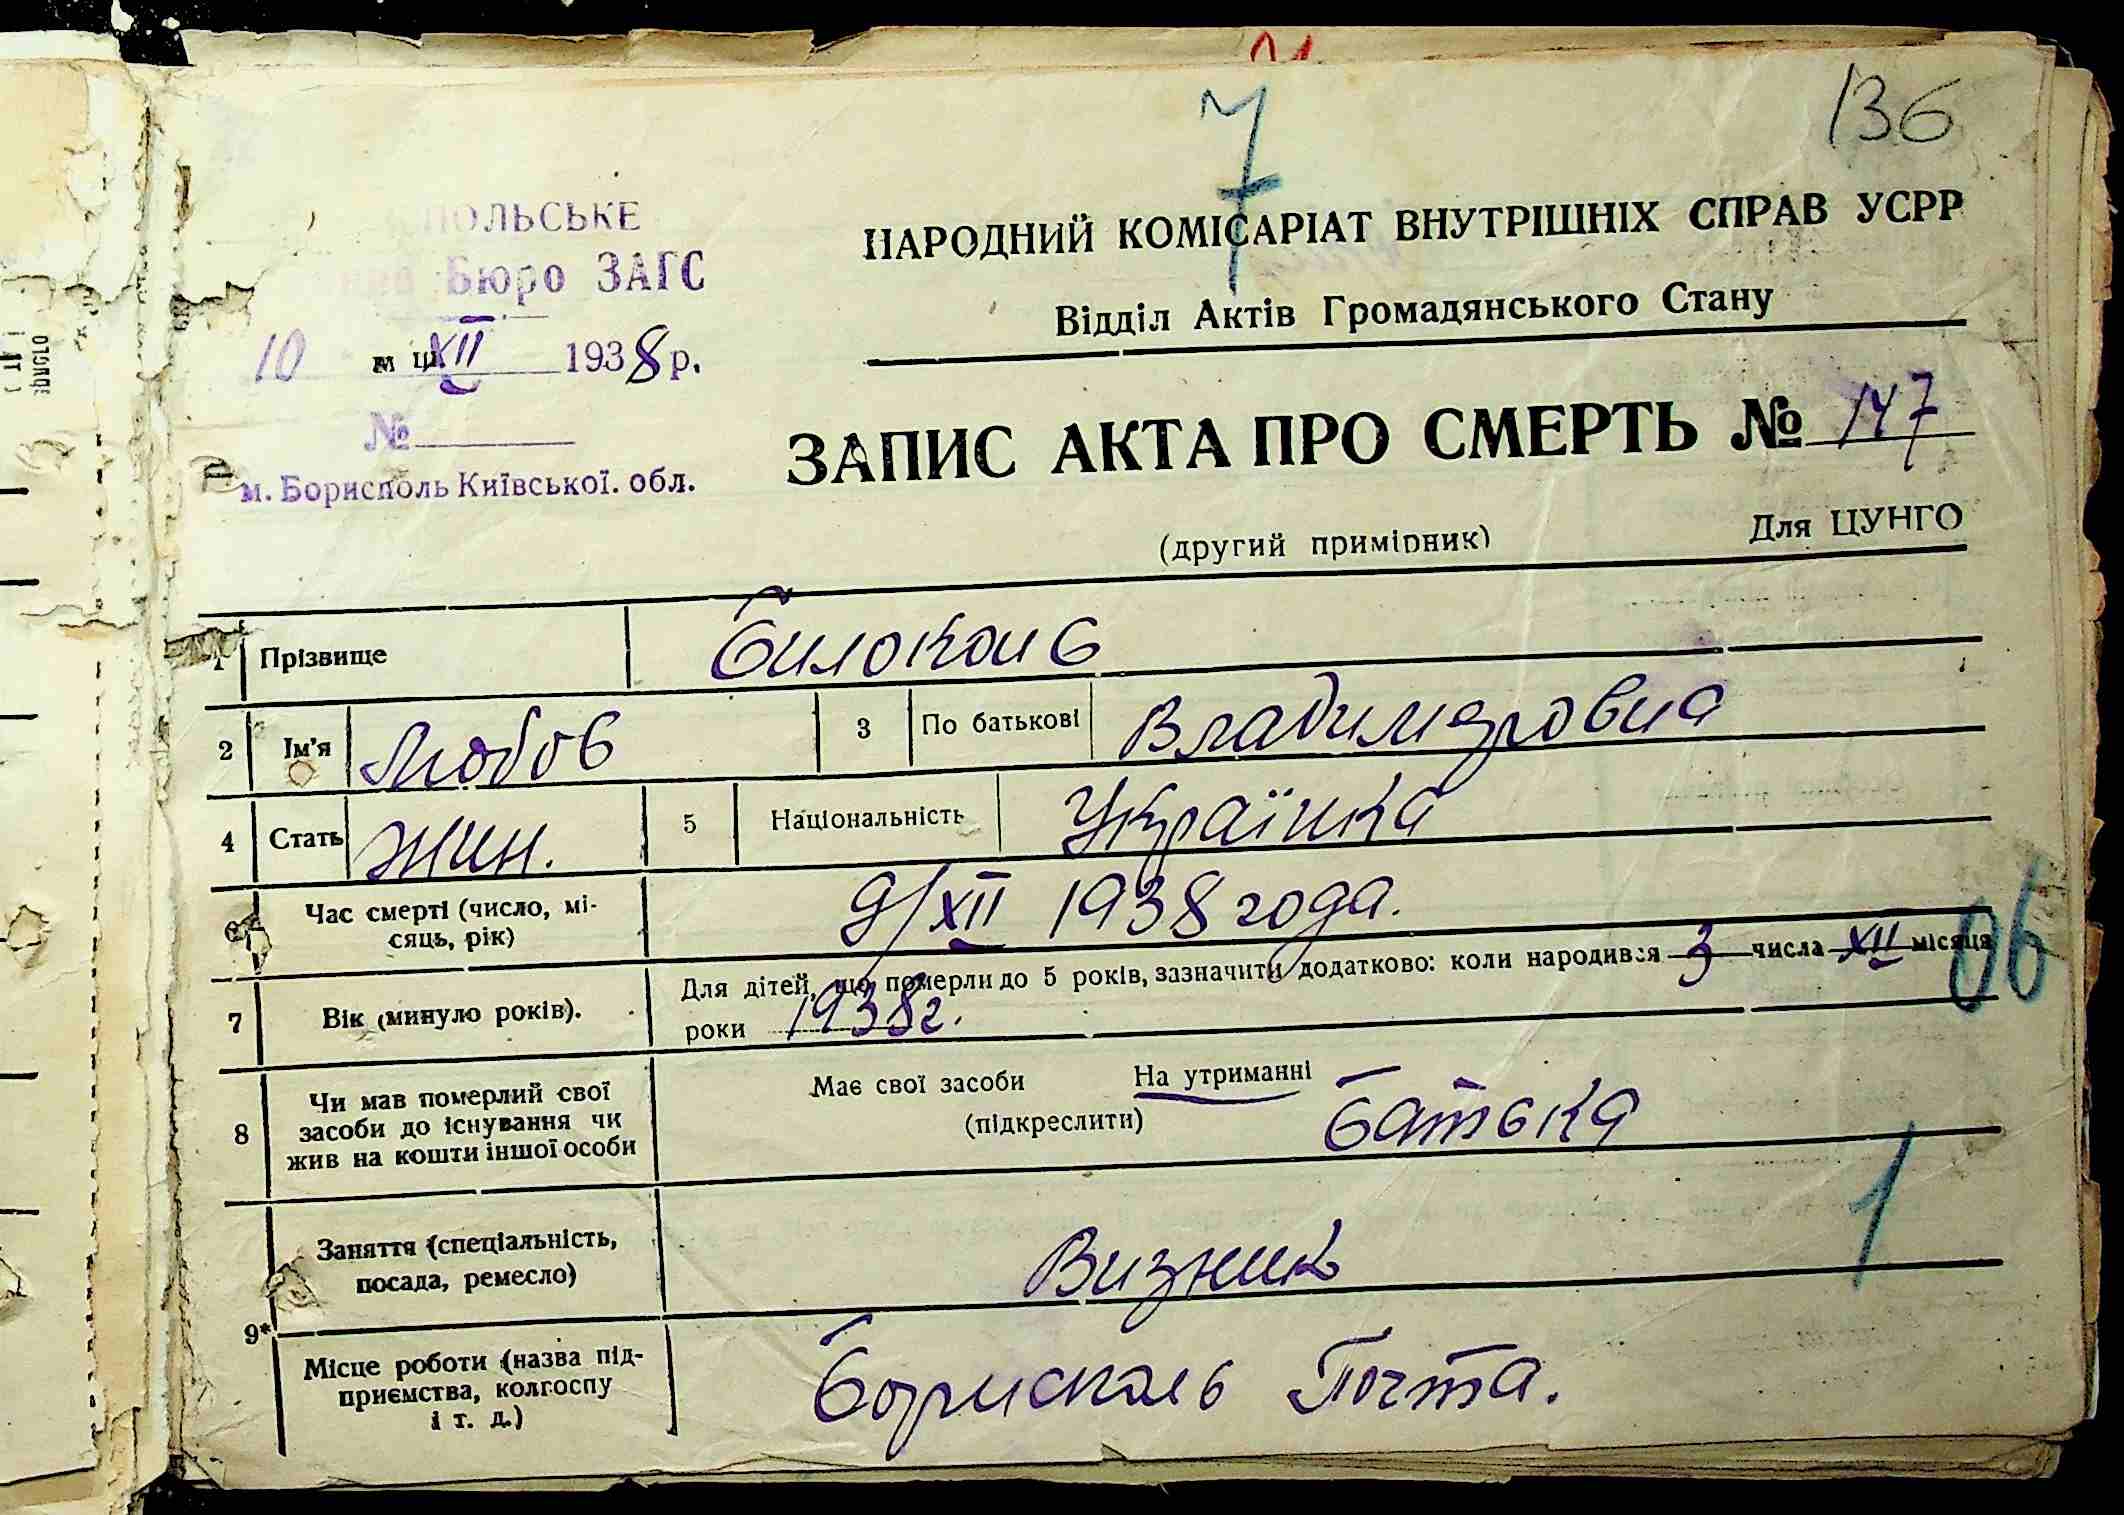 136
7
ПОЛЬСЬКЕ
Бюро ЗАГС
10 м ц XII 1938 р.
№
м. Бориспòль Київської. обл.
НАРОДНИЙ КОМІСАРІАТ ВНУТРІШНІХ СПРАВ УСРР
Відділ Актів Громадянського Стану
ЗАПИС АКТА ПРО СМЕРТЬ № 147
(другий примірник) Для ЦУНГО
1 Прізвище Билоконь
2 Ім'я Любов 3 По батькові Владимировна
4 Стать жин. 5 Національність Українка
6 Час смерті (число, мі-
сяць, рік) 9/XII 1938 года.
7 Вік (минуло років). Для дітей, що померли до 5 років, зазначити додатково: коли народився 3 числа XII місяця
роки 1938 г.
06
8 Чи мав померлий свої
засоби до існування чи
жив на кошти іншої особи
Має свої засоби На утриманні Батька
(підкреслити)
1
9* Заняття (спеціальність,
посада, ремесло) Визник
Місце роботи (назва під-
приємства, колгоспу
і т. д.) Борисполь Почта.